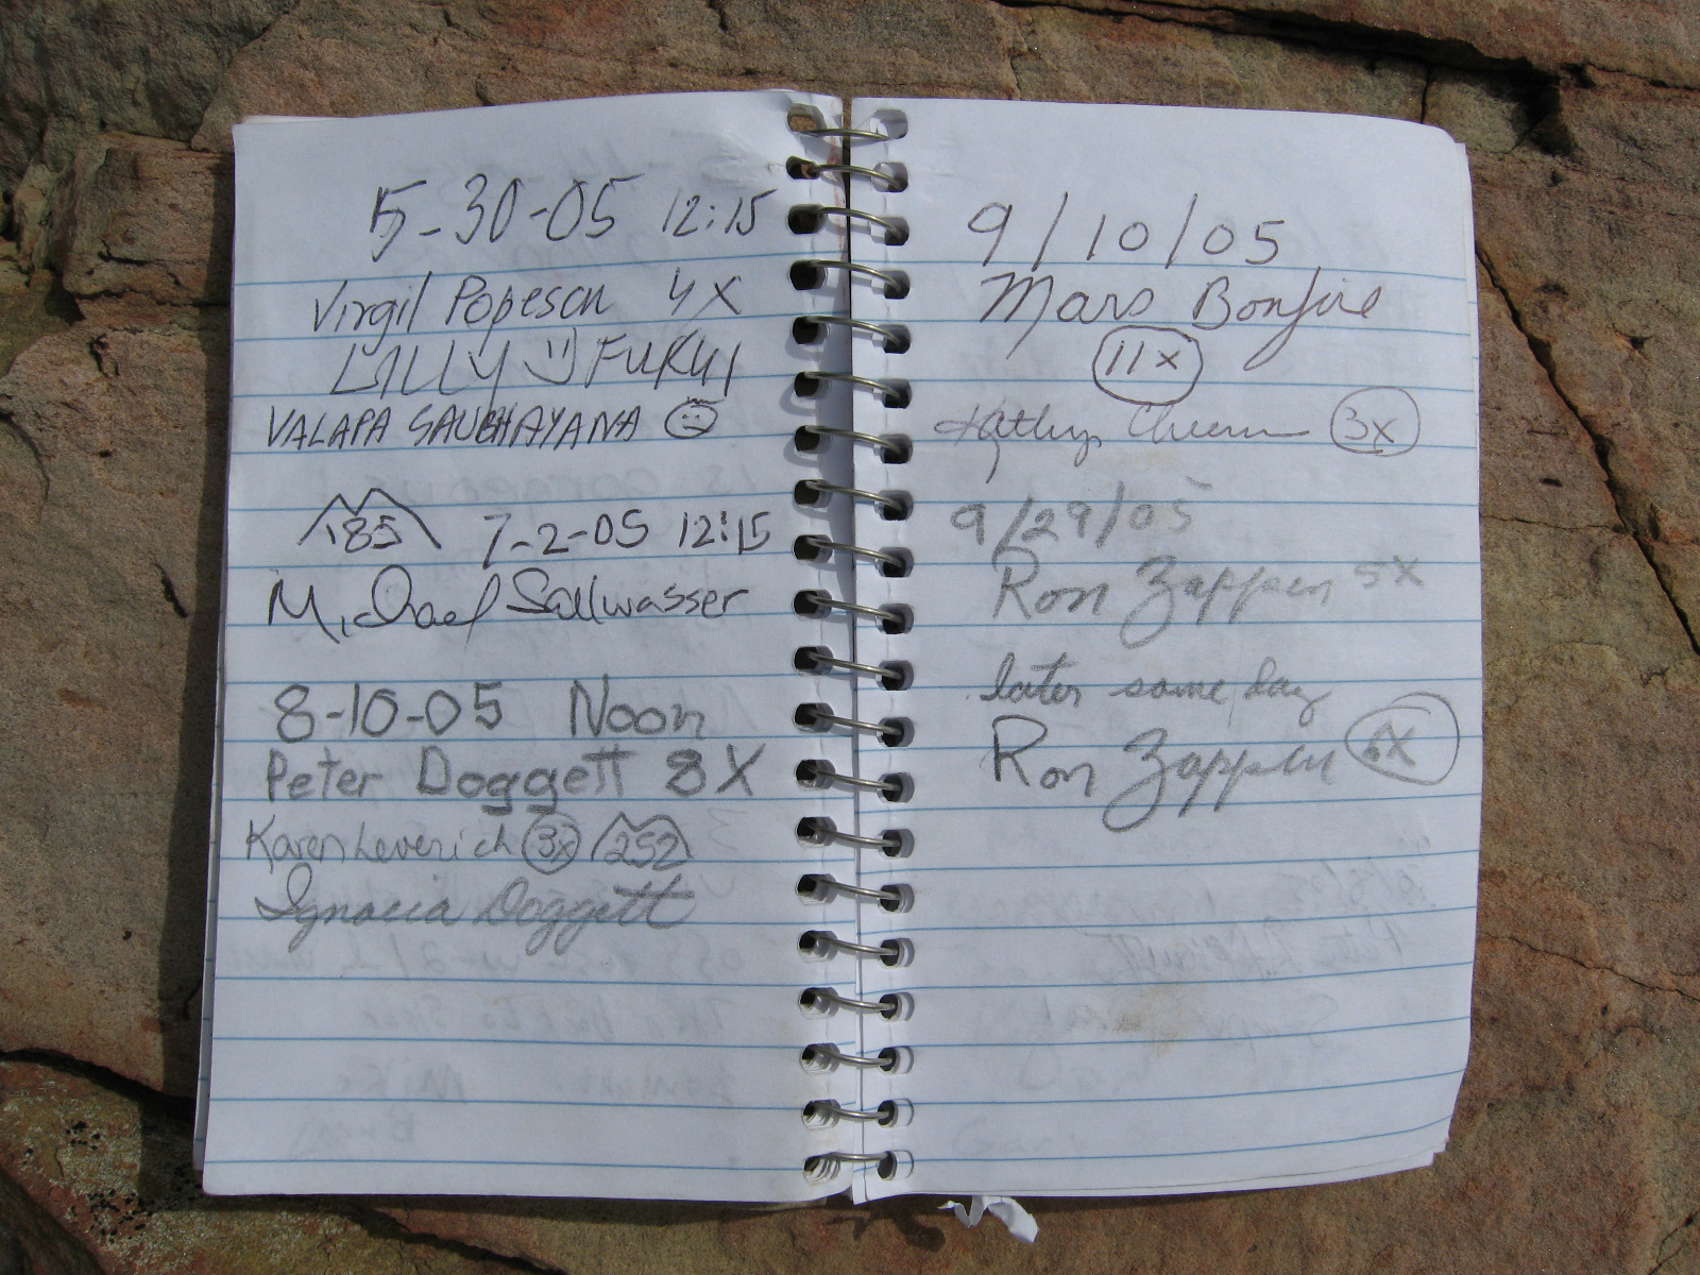 5-30-05 12:15
Virgil Popescu 4X
LILLY FUKUI
VALAPA SAUBHAYANA
185 7-2-05 12:15
Michael Sallwasser
8-10-05 Noon
Peter Doggett 8X
Karen Leverich 3x 252
Ignacia Doggett
9/10/05
Mars Bonfire
11x
Kathy 3x
9/29/05
Ron Zappen 5X
later same day
Ron Zappen 6X